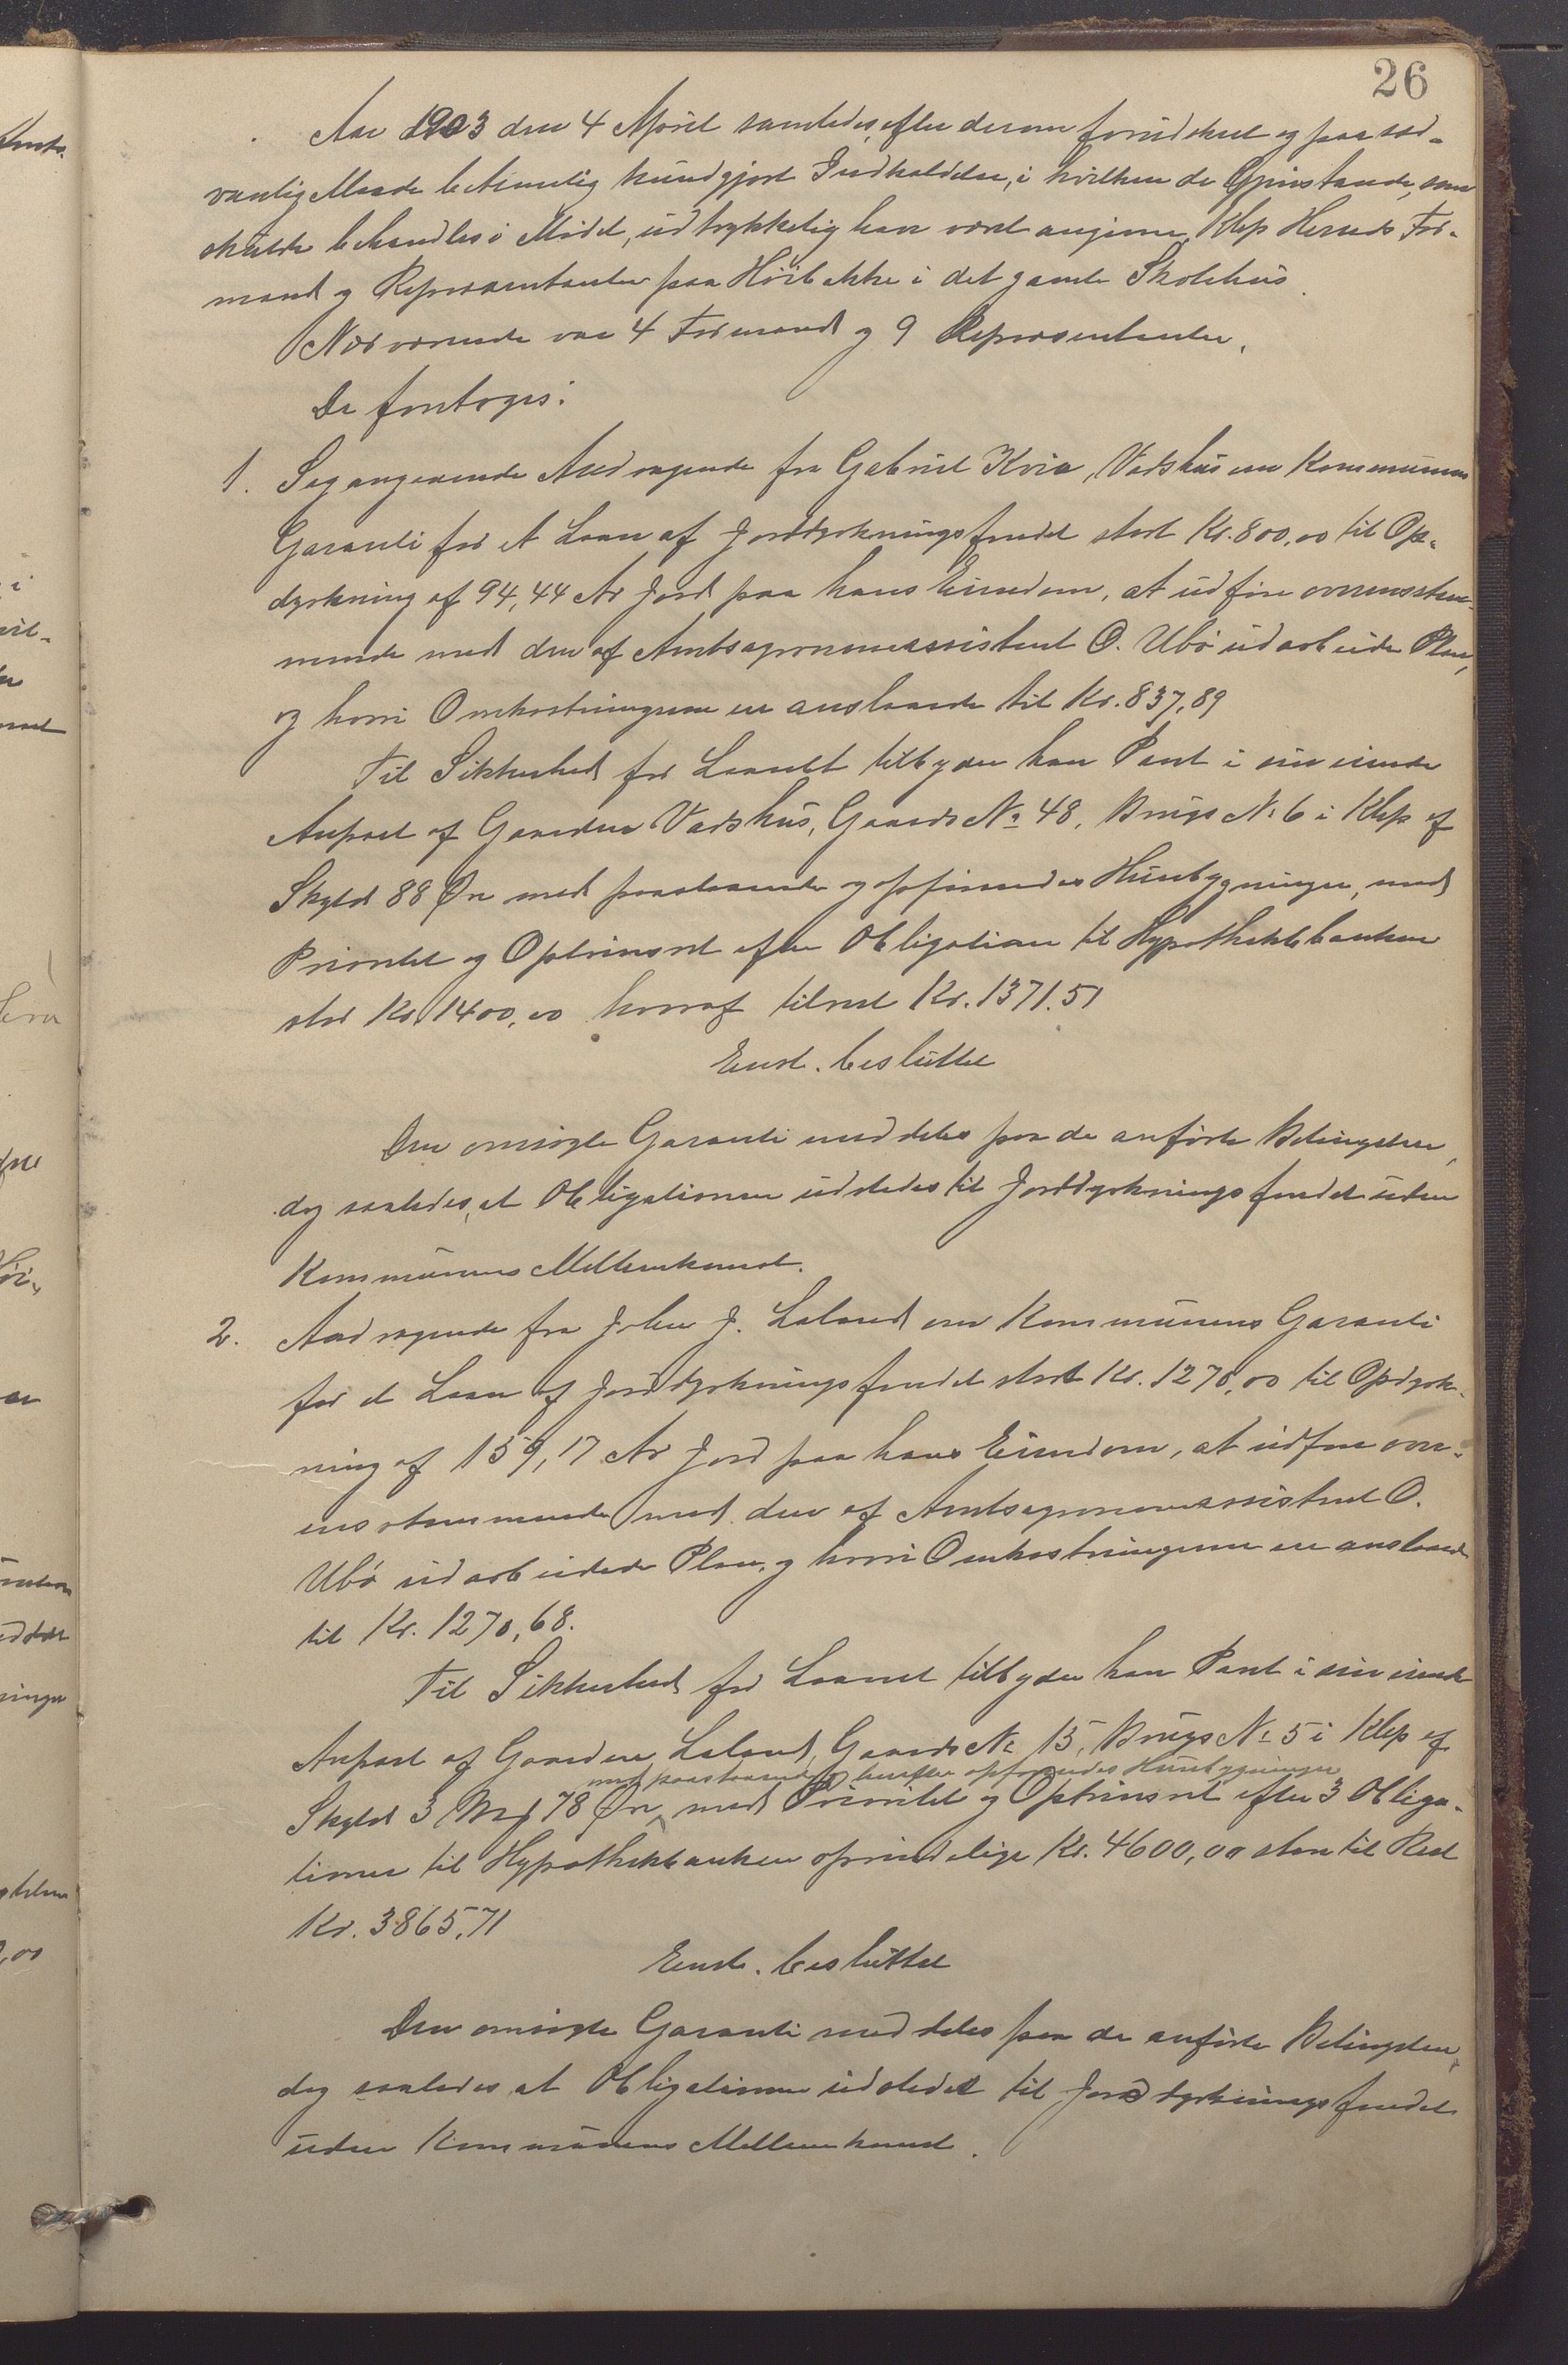 26
Aar 1903 den 4 April samledes, efter derom forudskeet og paa sæd-
vanlig Maade betimelig kundgjort Indkaldelse, i hvilken de Gjenstande, som
skulde behandles i Mødet, udtrykkelig have været angivne, Klep Herreds For-
mænd og Repræsentanter paa Höibakke i det gamle Skolehus.
Nærværende var 4 Formænd og 9 Repræsentanter.
Da foretoges:
1. Sag angaaende Andragende fra Gabriel Kvia, Vatshus om Kommunens
Garanti for et Laan af Jorddyrkningsfondet stort Kr. 800,00 til Op-
dyrkning af 94,44 Ar Jord paa hans Eiendom, at udføre overensstem-
mende med den af Amtsagronomassistent O. Ubö udarbeide Plan,
og hvori Omkostningerne ere anslaaede til Kr. 837,89
Til Sikkerhed for Laanet tilbyder han Pant i sin eiende
Anpart af Gaarden Vadshus, Gaards No 48, Brugs No 6 i Klep af
Skyld 88 Øre med paastaaende og opførendes Husebygninger, med
Prioritet og Optrinsret efter Obligation til Hypothekbanken
stor Kr. 1400,00 hvoraf tilrest Kr. 1371.51
Enst. besluttet
Den omsögte Garanti meddeles paa de anførte Betingelser,
dog saaledes, at Obligationen udstedes til Jorddyrkningsfondet uden
Kommunens Mellemkomst.
2. Andragende fra John J. Laland om Kommunens Garanti
for et Laan af Jorddyrkningsfondet stort Kr. 1270,00 til Opdyrk-
ning af 159,17 Ar Jord paa hans Eiendom, at udføre over-
ensstemmende med den af Amtsagronomassistent O.
Ubö udarbeidede Plan, og hvori Omkostningerne ere anslaaede
til Kr. 1270,68.
Til Sikkerhed for Laanet tilbyder han Pant i sin eiende
Anpart af Gaarden Laland, Gaards No 15, Brugs No 5 i Klep af
med paastaaende og herefter opførendes Husebygninger
Skyld 3 Mrk 78 Øre, med Prioritet og Optrinsret efter 3 Obliga-
tioner til Hypothekbanken oprindelige Kr. 4600,00 store til Rest
Kr. 3865,71
Enst. besluttet
Den omsögte Garanti meddeles paa de anførte Betingelser,
dog saaledes at Obligationen udstedes til Jorddyrkningsfondet
uden Kommunens Mellemkomst.